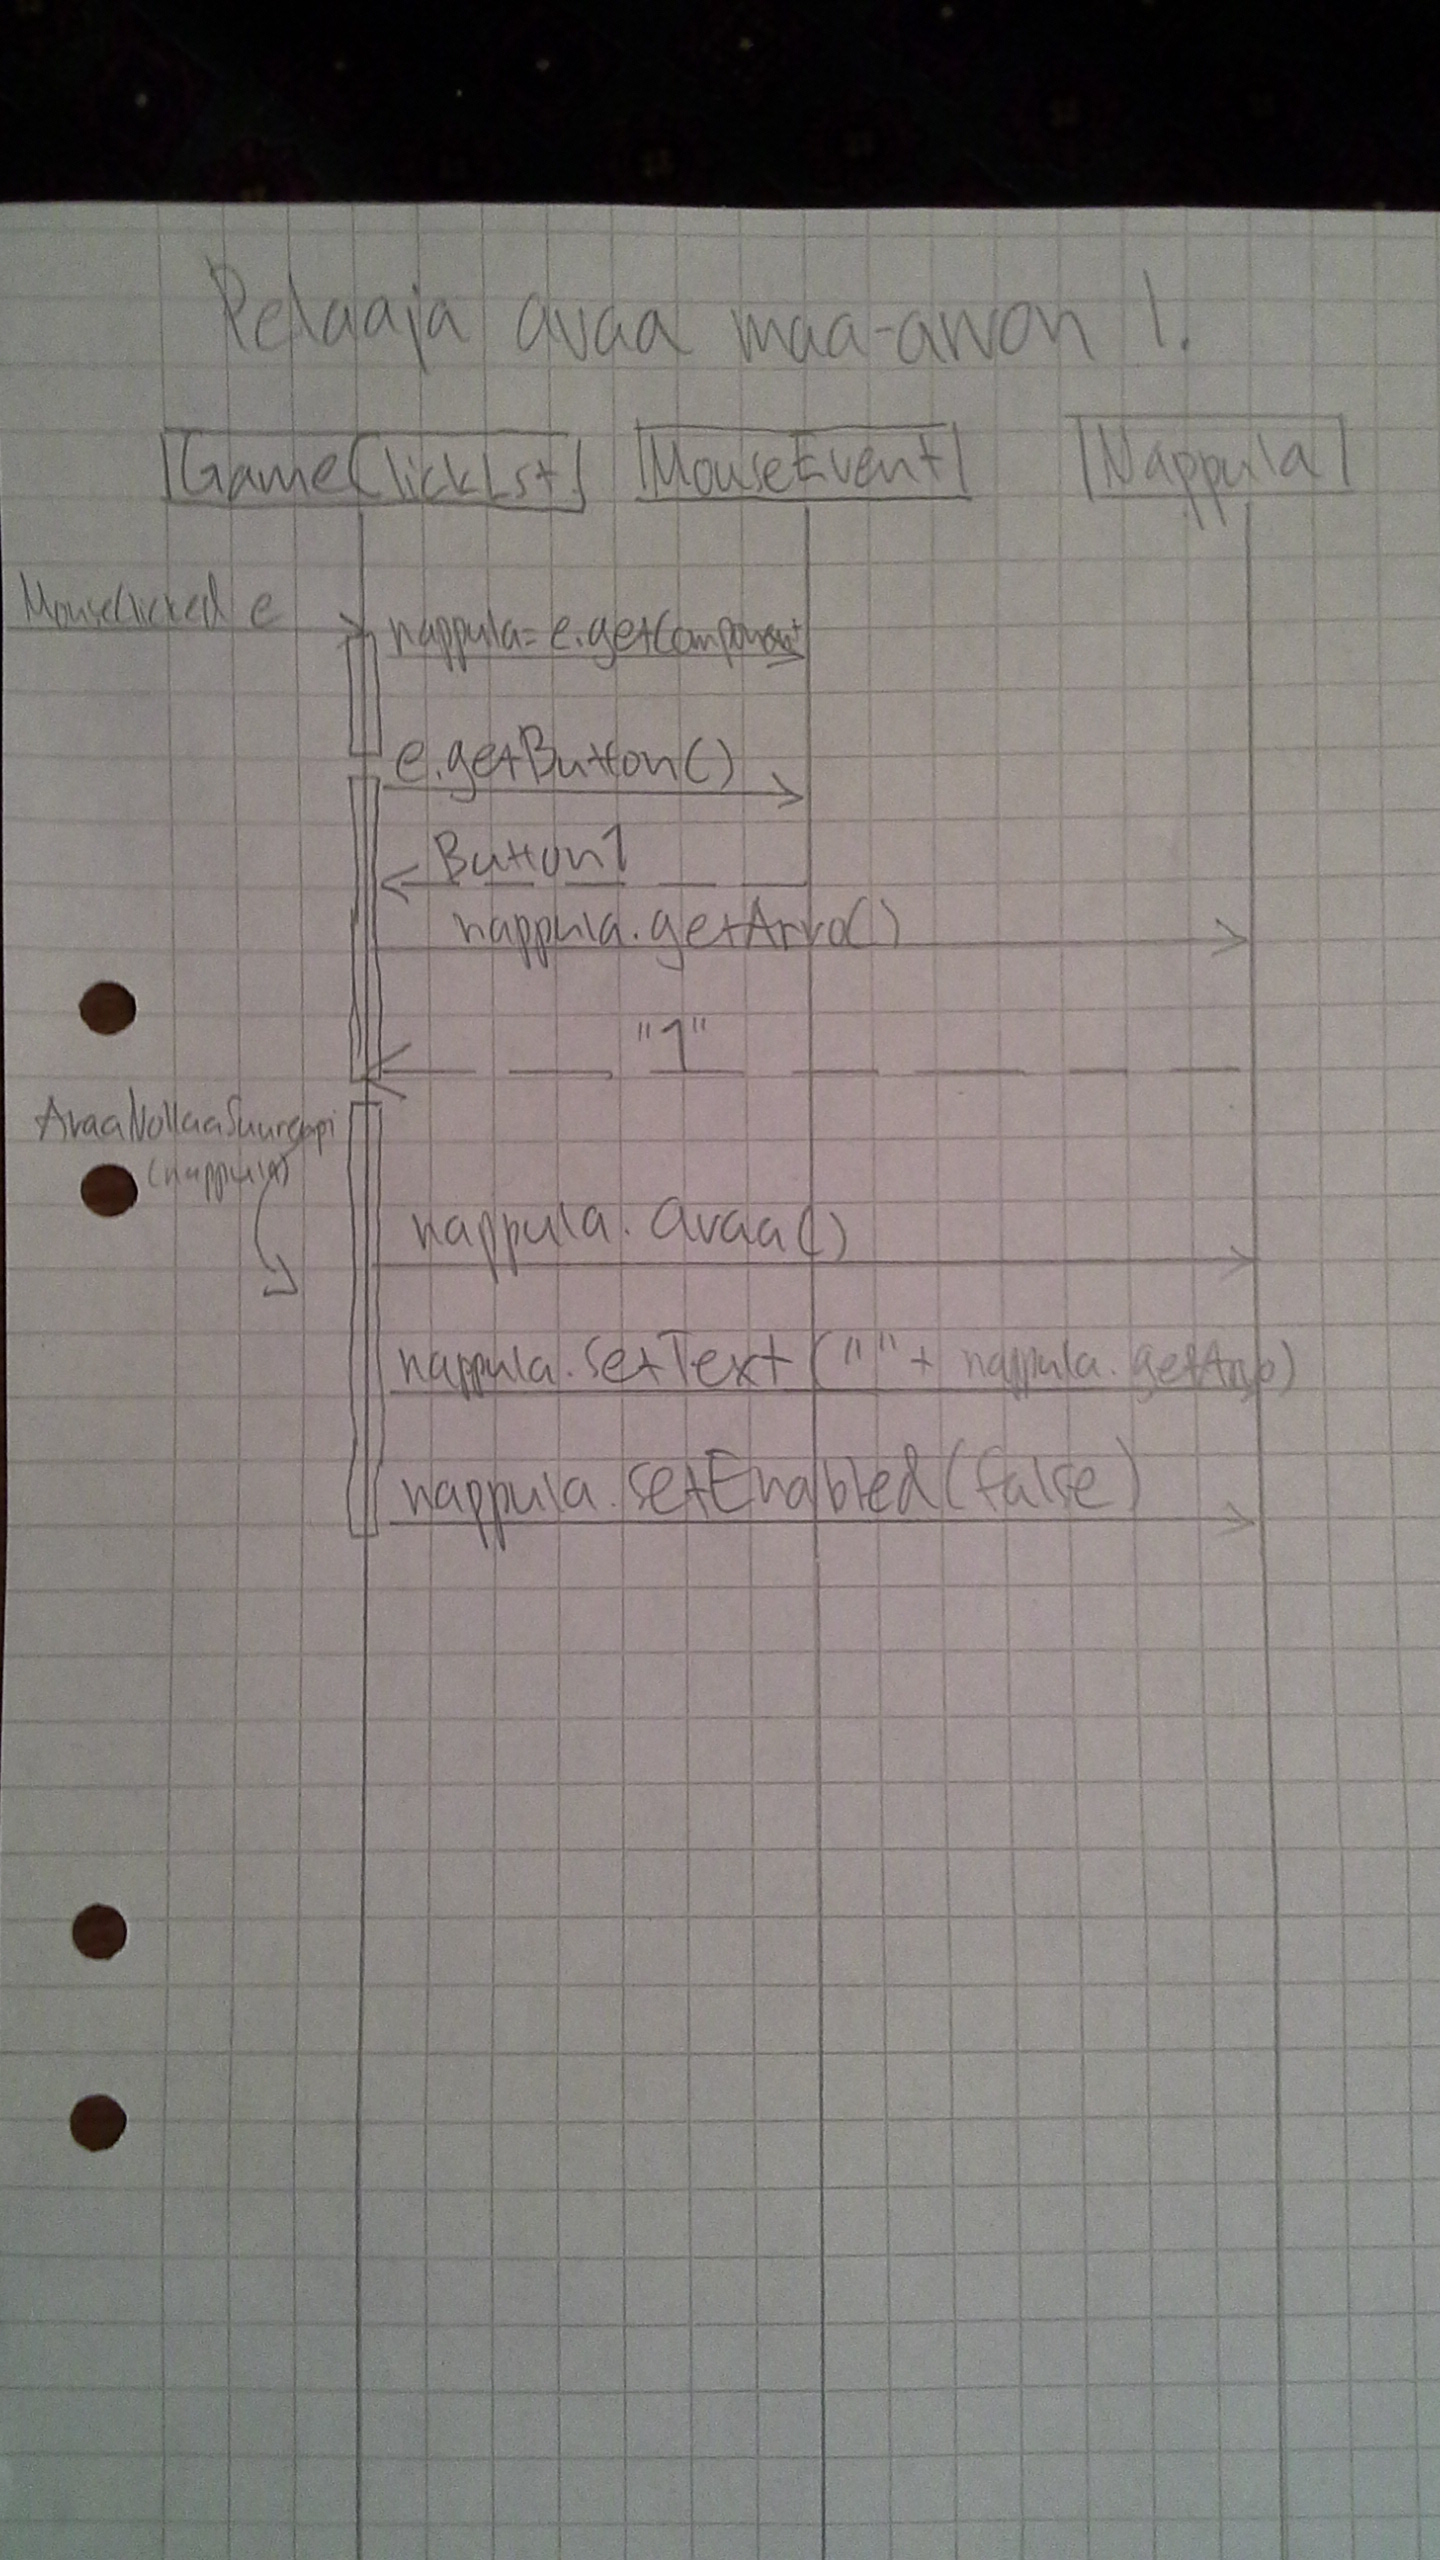 Pelaaja avaa maa-arvon 1.
GameClickLst MouseEvent Nappula
MouseClicked e
nappula= e.getComponent
e.getButton()
Button1
nappula.getArvo()
"1"
AvaaNollaaSuurempi
(nappula)
nappula.avaa()
nappula.setText (""+ nappula.getArvo)
nappula.setEnabled(false)